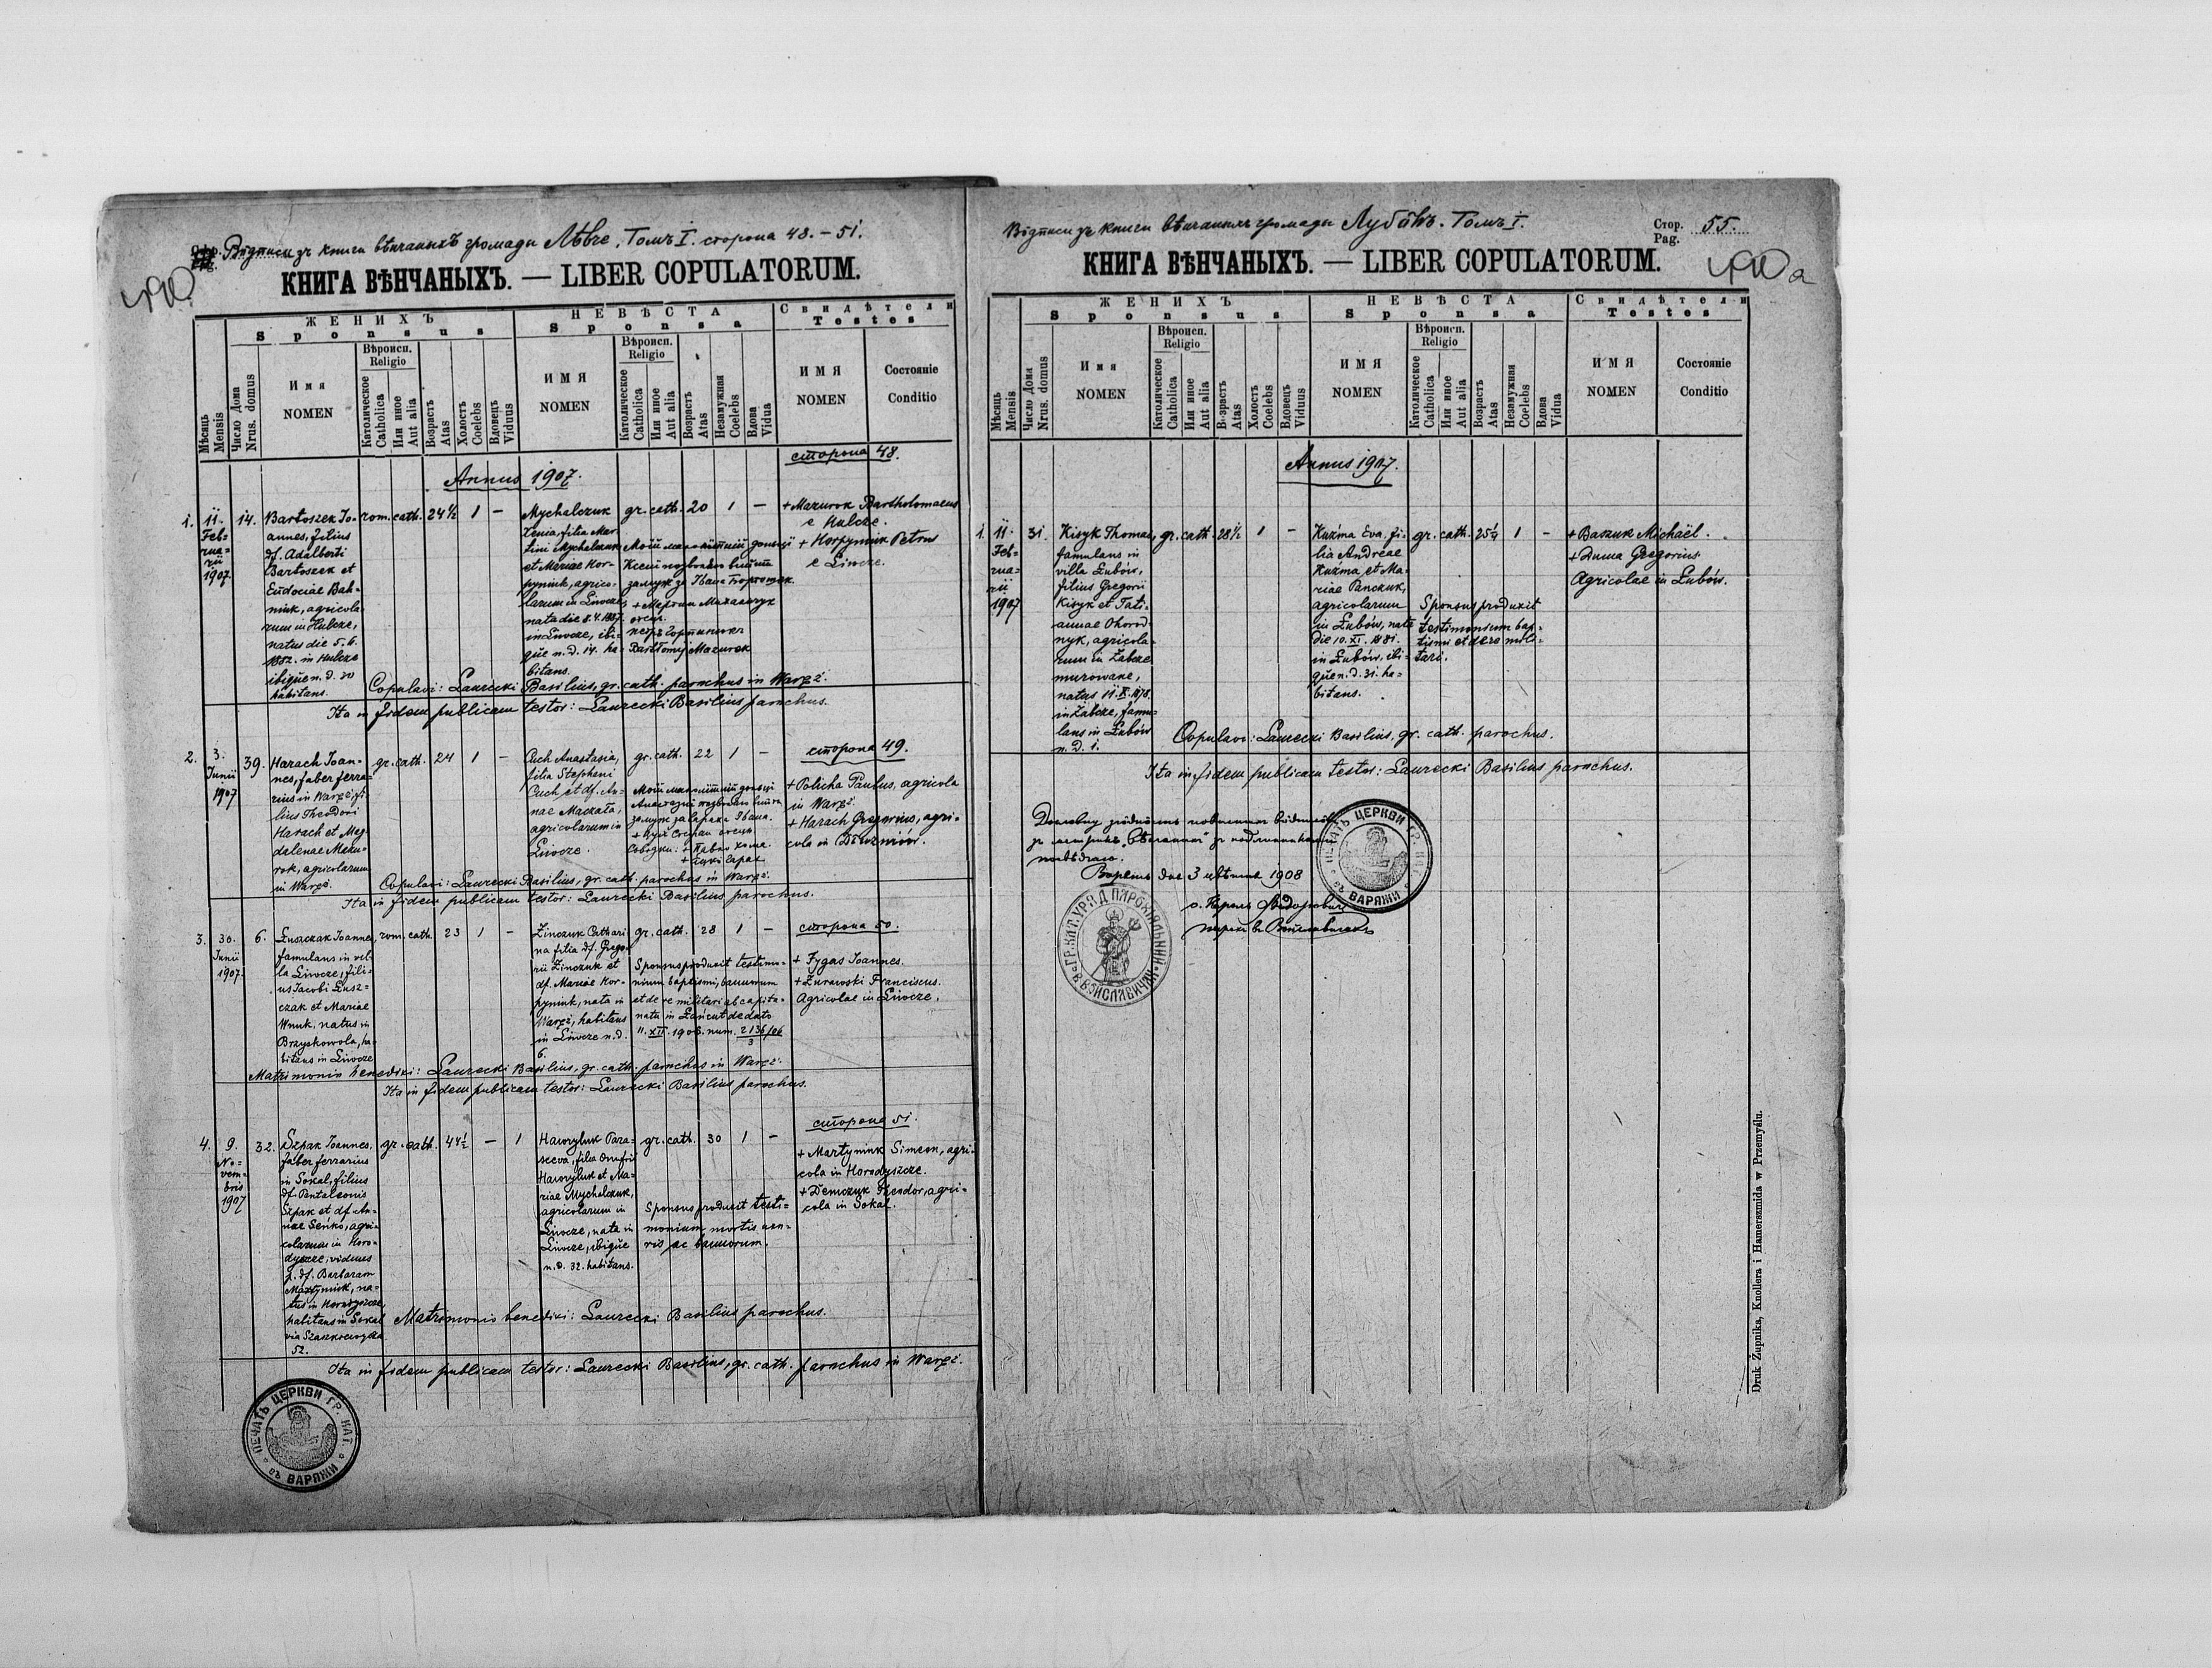 Відписи зъ книги вѣнчаныхъ громады Лѣвче. Томъ I. сторона 48.-51.
КНИГА ВѢНЧАНЫХЪ. — LIBER COPULATORUM.
Мѣсяць Mensis
Число Дома Nrus. domus
ЖЕНИХЪ
Sponsus
Имя
NOMEN
Вѣроисп.
Religio
Католическое Catholica
Или иное Aut alia
Возрастъ Atas
Холостъ Coelebs
Вдовецъ Viduus
НЕВѢСТА
Sponsa
ИМЯ
NOMEN
Вѣроисп.
Religio
Католическое Catholica
Или иное Aut alia
Возрастъ Atas
Незамужная Coelebs
Вдова Vidua
Свидѣтели
Testes
ИМЯ
NOMEN
Состояніе
Conditio
сторона 48.
Annus 1907.
1.
11.
Feb=
rua=
rii
1907.
14.
Bartoszek Jo-
annes, filius
df. Adalberti
Bartoszek et
Eudociae Bah-
niuk, agricola
rum in Hulcze,
natus die 5.6.
1882. in Hulcze
ibique n. d. 20
habitans.
rom. cath. 24½ 1 —
Mychalczuk
Xenia, filia Mar
tini Mychalczuk
et Mariae Hor-
pyniuk, agrico-
larum in Liwcze,
nata die 8.4.1887.
in Liwcze, ibi-
que n. d. 14. ha-
bitans.
gr. cath. 20 1 —
Моїй малолїтній доньцї
Ксени позволяю вийти
замуж за Івана Бартошек
+ Мартин Михальчук
отець.
Петръ Горпинюк
Bartłomij Mazurok
+ Mazurok Bartholomaeus
e Hulcze.
+ Horpyniuk Petrus
e Liwcze.
Copulavi: Laurecki Basilius, gr. cath. parochus in Waręż.
Ita in fidem publicam testor: Laurecki Basilius parochus.
2.
3.
Iunii
1907
39.
Harach Ioan-
nes, faber ferra-
rius in Waręż, fi-
lius Theodori
Harach et Mag-
dalenae Mazu-
rok, agricolarum
in Waręż.
gr. cath. 24 1 —
Cuch Anastasia,
filia Stephani
Cuch et df. An-
nae Maczała,
agricolarum in
Liwcze.
gr. cath. 22 1 —
Моїй малолїтній доньцї
Анастазиї позволяю вийти
замуж за Гараха Івана.
+ Цух Стефан отець
сторона 49.
+ Policha Paulus, agricola
in Waręż.
+ Harach Gregorius, agri-
cola in Dłużniów.
Copulavi: Laurecki Basilius, gr. cath. parochus in Waręż.
Ita in fidem publicam testor: Laurecki Basilius parochus.
3.
30.
Iunii
1907.
6.
Łuszczak Ioannes,
famulans in vil-
la Liwcze, fili-
us Iacobi Łusz=
czak et Mariae
Wnuk, natus in
Brzyskowola, ha-
bitans in Liwcze
rom. cath. 23 1 —
Zinczuk Cathari
na filia df. Grego-
rii Zinczuk et
df. Mariae Hor-
pyniuk, nata in
Waręż, habitans
in Liwcze n. d.
6.
gr. cath. 28 1 —
Sponsus produxit testimo-
nium baptismi, bannorum
et de re militari ab capita-
natu in Łańcut de dato
11. XII. 1906. num. 2136/06
3
сторона 50.
+ Fygas Ioannes.
+ Żurawski Franciscus.
Agricolae in Liwcze.
Matrimonio benedixi: Laurecki Basilius, gr. cath. parochus in Waręż.
Ita in fidem publicam testor: Laurecki Basilius parochus.
4.
9.
No=
vem=
bris
1907
32.
Szpak Ioannes,
faber ferrarius
in Sokal, filius
df. Pantaleonis
Szpak et df. An-
nae Seńko, agri-
colarum in Horo-
dyszcze, viduus
p. df. Barbaram
Martyniuk, na-
tus in Horodyszcze,
habitans in Sokal
via Szaszkewycza
52.
gr. cath. 44½ — 1
Hawryluk Para-
sceva, filia Onufrii
Hawryluk et Ma-
riae Mychalczuk,
agricolarum in
Liwcze, nata in
Liwcze, ibique
n. d. 32. habitans.
gr. cath. 30 1 —
Sponsus produxit testi=
monium mortis uxo-
ris ac bannorum.
сторона 51.
+ Martyniuk Simeon, agri-
cola in Horodyszcze.
+ Demczuk Theodor, agri-
cola in Sokal.
Matrimonio benedixi: Laurecki Basilius parochus.
Ita in fidem publicam testor: Laurecki Basilius, gr. cath. parochus in Waręż.
ПЕЧАТЬ ЦЕРКВИ ГР. КАТ. ВЪ ВАРЯЖИ
Відписи зъ книги вѣнчаныхъ громады Лубôвъ. Томъ I.
Стор.
Pag. 55.
490a
КНИГА ВѢНЧАНЫХЪ. — LIBER COPULATORUM.
Мѣсяць Mensis
Число Дома Nrus. domus
ЖЕНИХЪ
Sponsus
Имя
NOMEN
Вѣроисп.
Religio
Католическое Catholica
Или иное Aut alia
Возрастъ Atas
Холостъ Coelebs
Вдовецъ Viduus
НЕВѢСТА
Sponsa
ИМЯ
NOMEN
Вѣроисп.
Religio
Католическое Catholica
Или иное Aut alia
Возрастъ Atas
Незамужная Coelebs
Вдова Vidua
Свидѣтели
Testes
ИМЯ
NOMEN
Состояніе
Conditio
Annus 1907.
1.
11.
Feb-
rua=
rii
1907
31.
Kisyk Thomas,
famulans in
villa Łubów,
filius Gregorii
Kisyk et Tati-
annae Ohorod-
nyk, agricola-
rum in Żabcze
murowane,
natus 11. X. 1878.
in Żabcze, famu-
lans in Łubów
n. d. 1.
gr. cath. 28½ 1 —
Kuźma Eva, fi-
lia Andreae
Kuźma et Ma-
riae Panczuk,
agricolarum
in Łubów, nata
die 10. XI. 1881.
in Łubów, ibi-
que n. d. 31. ha-
bitans.
gr. cath. 25¼ 1 —
Sponsus produxit
testimonium bap-
tismi et de re mili-
tari.
+ Baszuk Michaël.
+ Duma Gregorius.
Agricolae in Łubów.
Copulavi: Laurecki Basilius, gr. cath. parochus.
Ita in fidem publicam testor: Laurecki Basilius parochus.
Варяжъ дня 3 цвѣтня 1908
ПЕЧАТЬ ЦЕРКВИ ГР. КАТ. ВЪ ВАРЯЖИ
ГР. КАТ. УРЯД ПАРОХІЯЛЬНИЙ В ВОИСЛАВИЧАХ
Druk Żupnika, Knollera i Hamerszmida w Przemyślu.